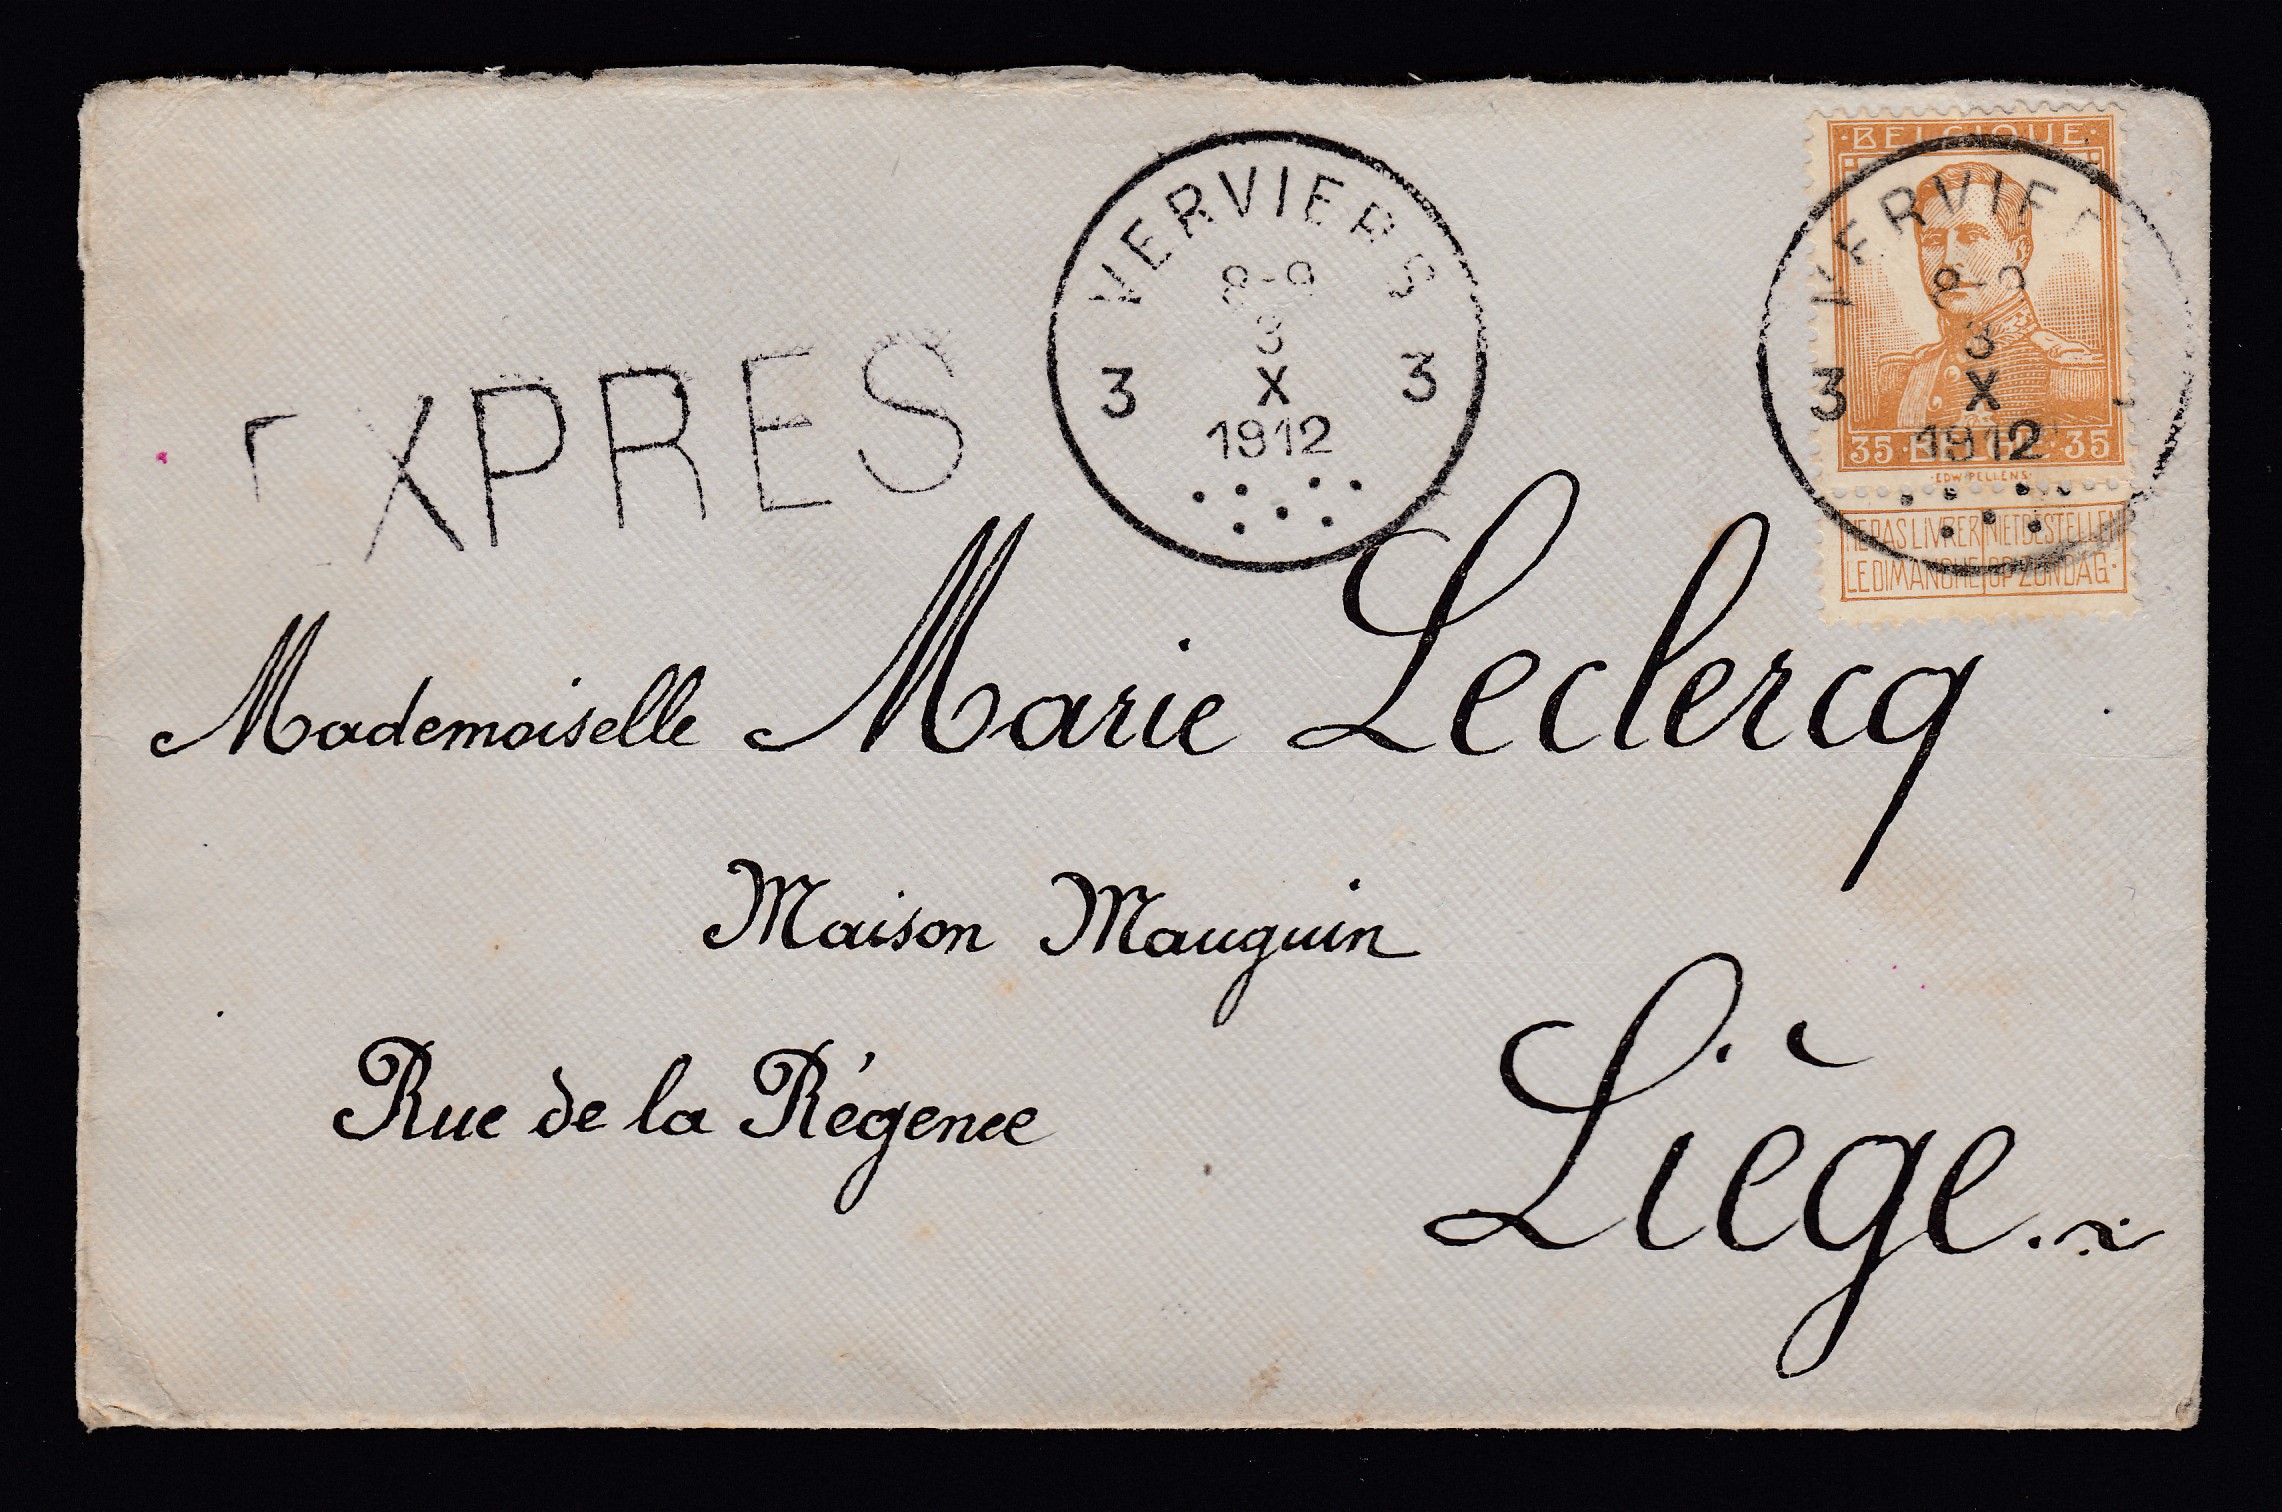 EXPRES
VERVIERS
8-9
3
X
1912
3 3
·BELGIQUE·
VERVIE
8-9
3
X
1912
3
35 35
EDW. PELLENS
NE PAS LIVRER LE DIMANCHE
NIET BESTELLEN OP ZONDAG·
Mademoiselle Marie Leclercq
Maison Mauguin
Rue de la Régence
Liège.